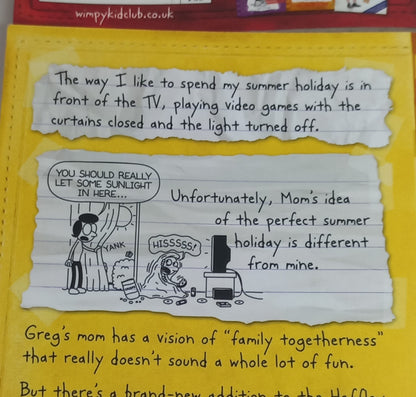 wimpykidclub.co.uk
The way I like to spend my summer holiday is in
front of the TV, playing video games with the
curtains closed and the light turned off.
YOU SHOULD REALLY
LET SOME SUNLIGHT
IN HERE...
YANK
HISSSSS!
Unfortunately, Mom's idea
of the perfect summer
holiday is different
from mine.
Greg's mom has a vision of "family togetherness"
that really doesn't sound a whole lot of fun.
But there's a brand-new addition to the